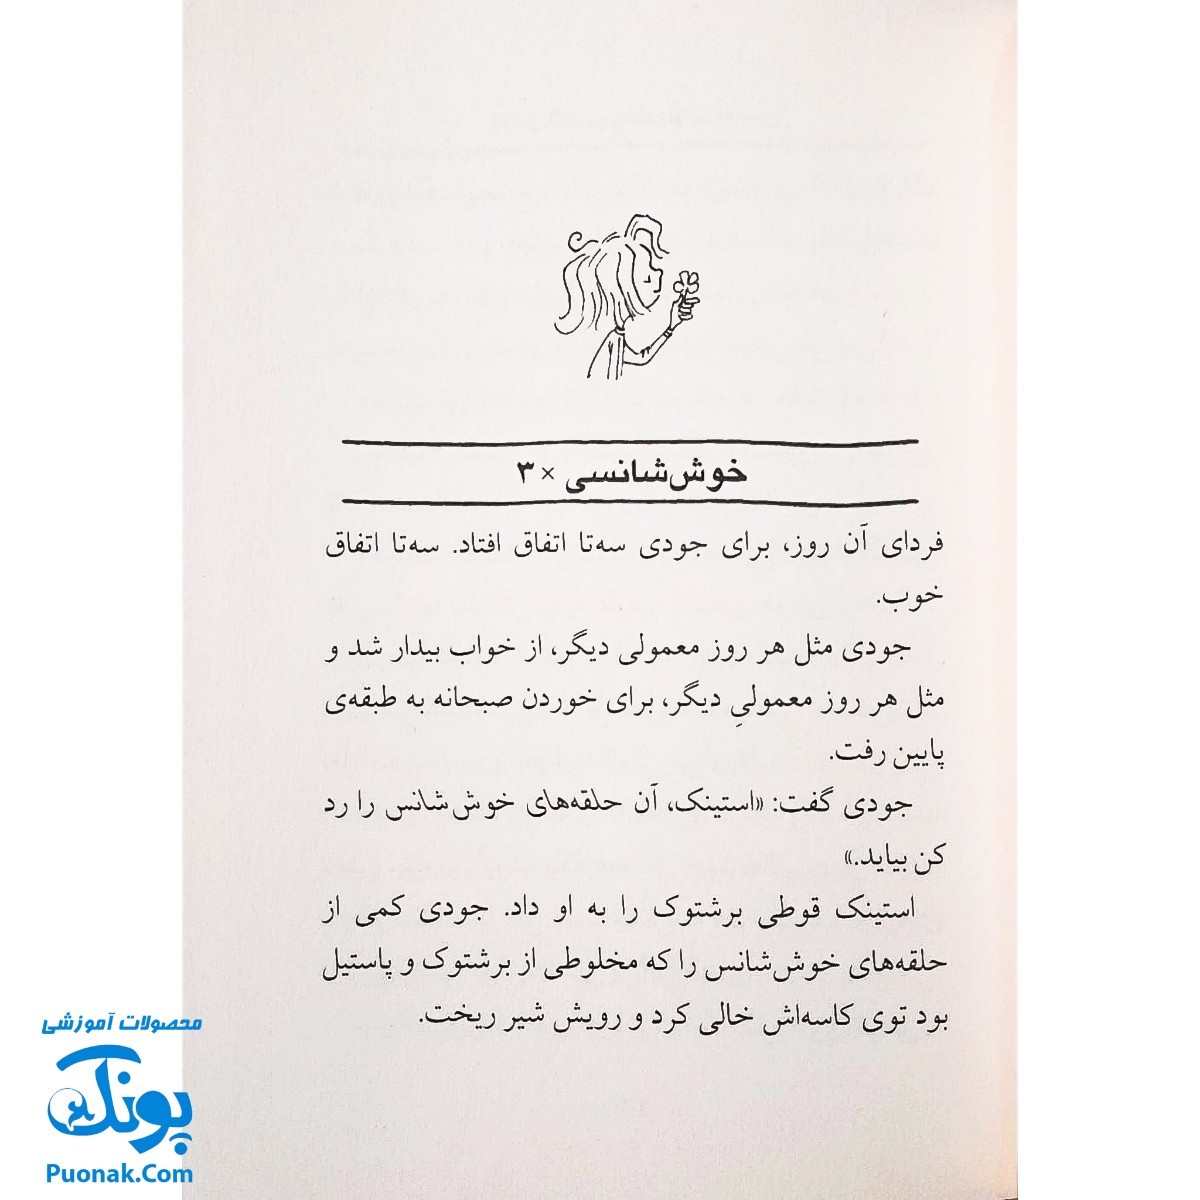 خوش‌شانسی × ۳
فردای آن روز، برای جودی سه‌تا اتفاق افتاد. سه‌تا اتفاق
خوب.
جودی مثل هر روز معمولی دیگر، از خواب بیدار شد و
مثل هر روز معمولیِ دیگر، برای خوردن صبحانه به طبقه‌ی
پایین رفت.
جودی گفت: «استینک، آن حلقه‌های خوش‌شانس را رد
کن بیاید.»
استینک قوطی برشتوک را به او داد. جودی کمی از
حلقه‌های خوش‌شانس را که مخلوطی از برشتوک و پاستیل
بود توی کاسه‌اش خالی کرد و رویش شیر ریخت.
محصولات آموزشی
پونک
Puonak.Com